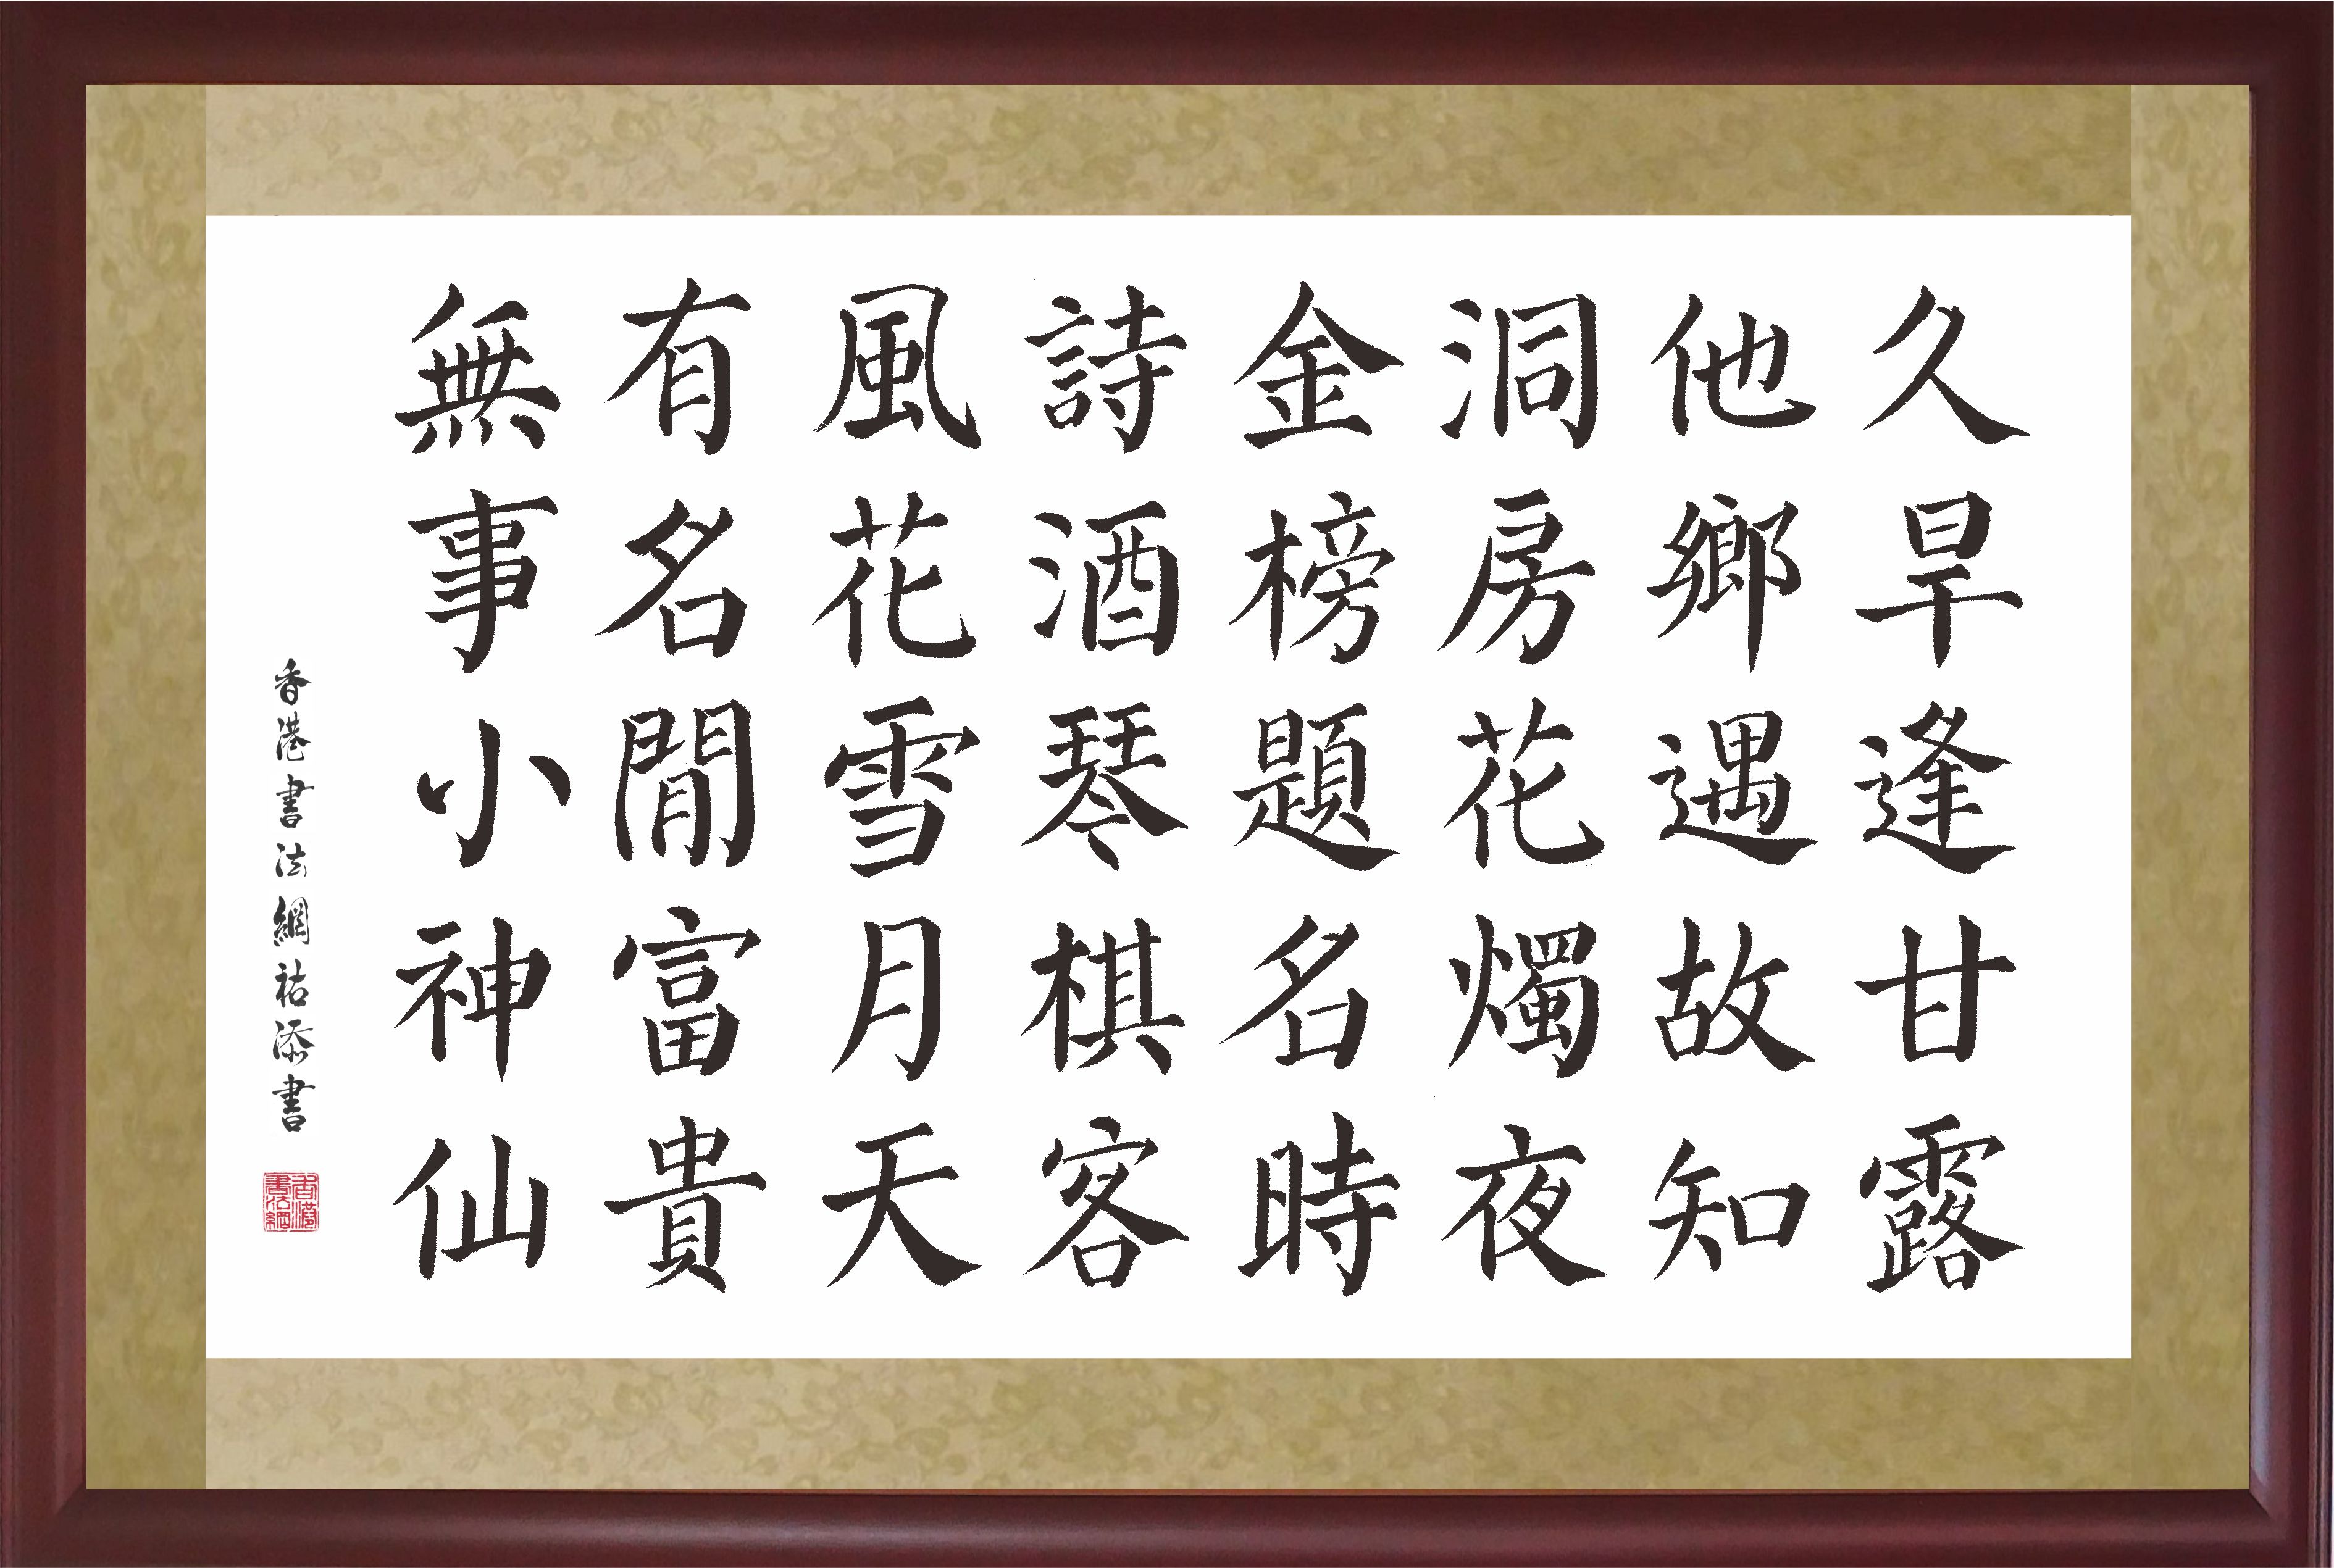 久旱逢甘露
他鄉遇故知
洞房花燭夜
金榜題名時
詩酒琴棋客
風花雪月天
有名閒富貴
無事小神仙
香港書法網祐添書
香港書法網